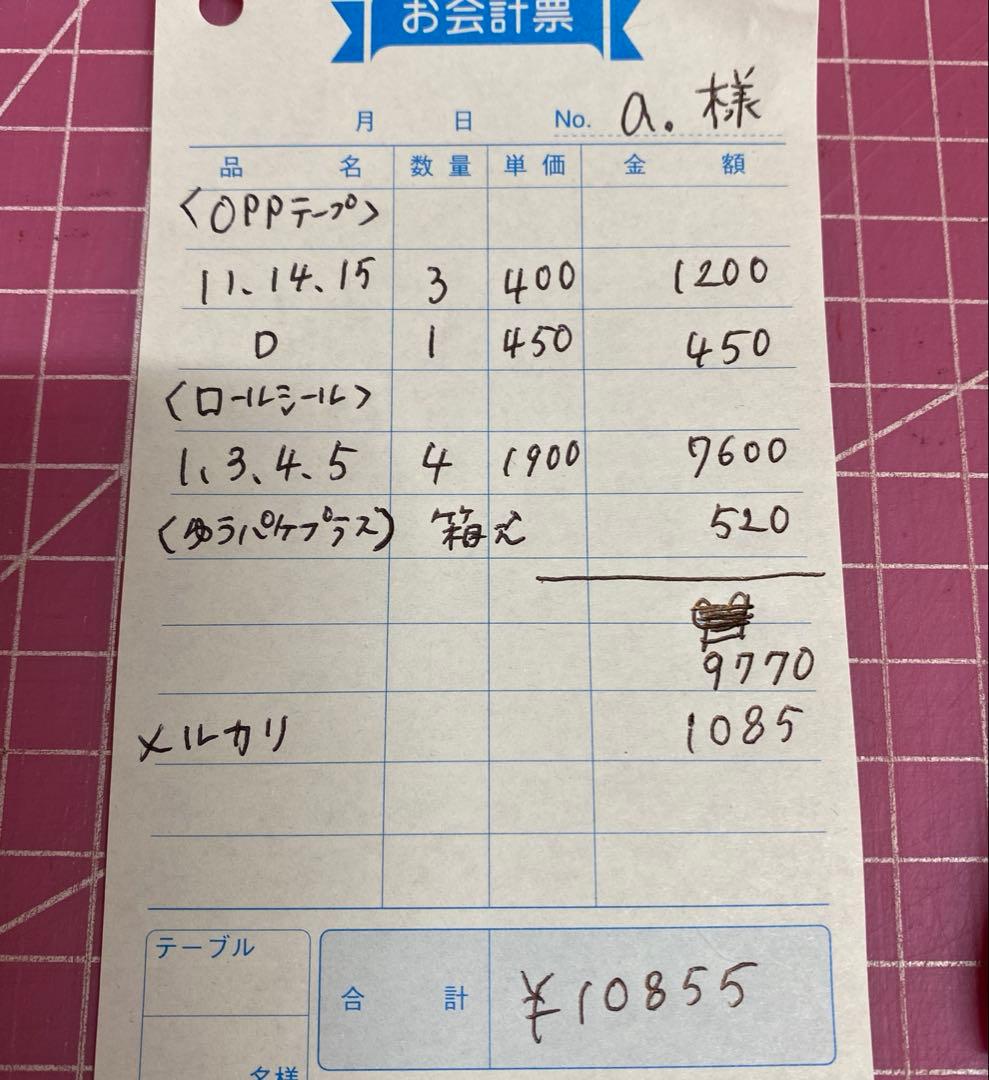 お会計票
月 日 No. a. 様
品名 数量 単価 金額
〈OPPテープ〉
11、14、15 3 400 1200
D 1 450 450
〈ロールシール〉
1、3、4、5 4 1900 7600
(ゆうパケプラス) 箱代 520
9770
メルカリ 1085
テーブル
合計 ¥10855
名様